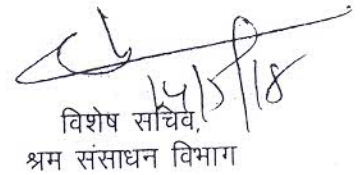 14/5/18
विशेष सचिव,
श्रम संसाधन विभाग